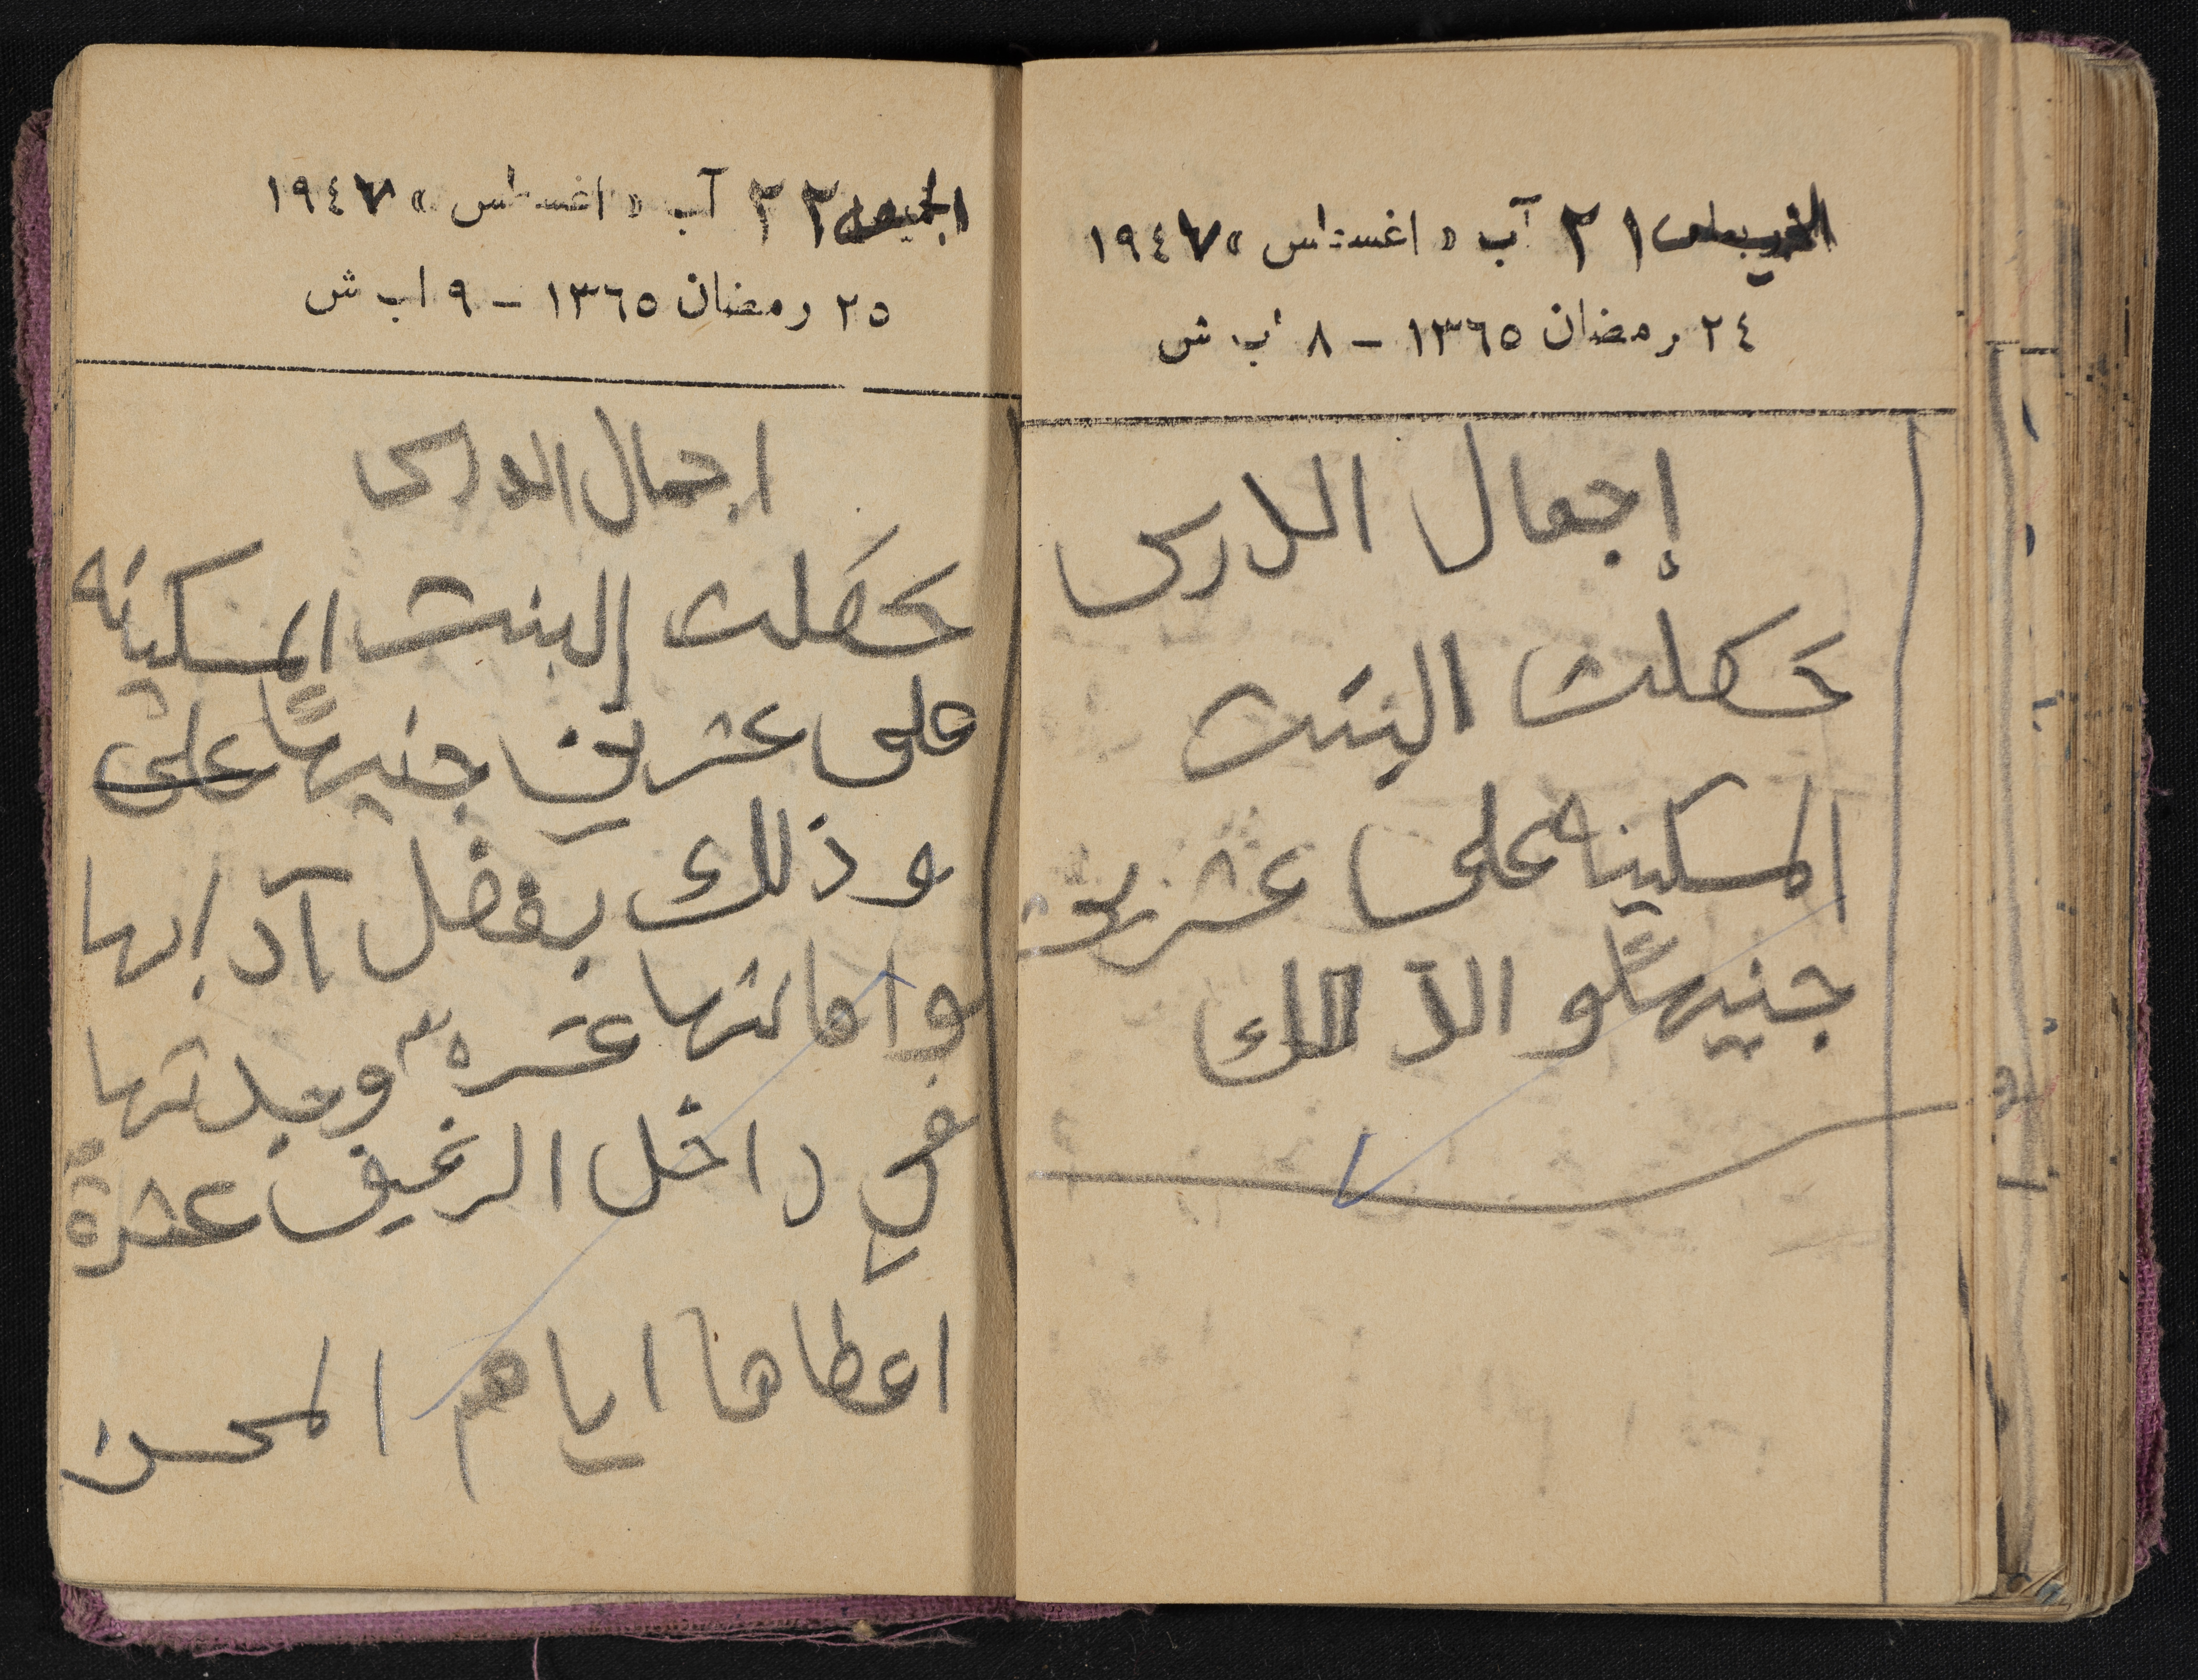 ٢١ آب « اغسطس » ١٩٤٧
٢٤ رمضان ١٣٦٥ - ٨ اب ش
إجمال الدرس
حصلت البنت
المسكينه على عشرين
جنيهاً و الذالك
الجمعه ٢٢ آب « اغسطس » ١٩٤٧
٢٥ رمضان ١٣٦٥ - ٩ اب ش
اجمال الدرس
حصلت البنت المسكينه
على عشرين جنيهاً على
وذلك بفضل آدابها
وامانتها عشره وجدتها
في داخل الرغيف عشرة
اعطاها اياهم المحسن